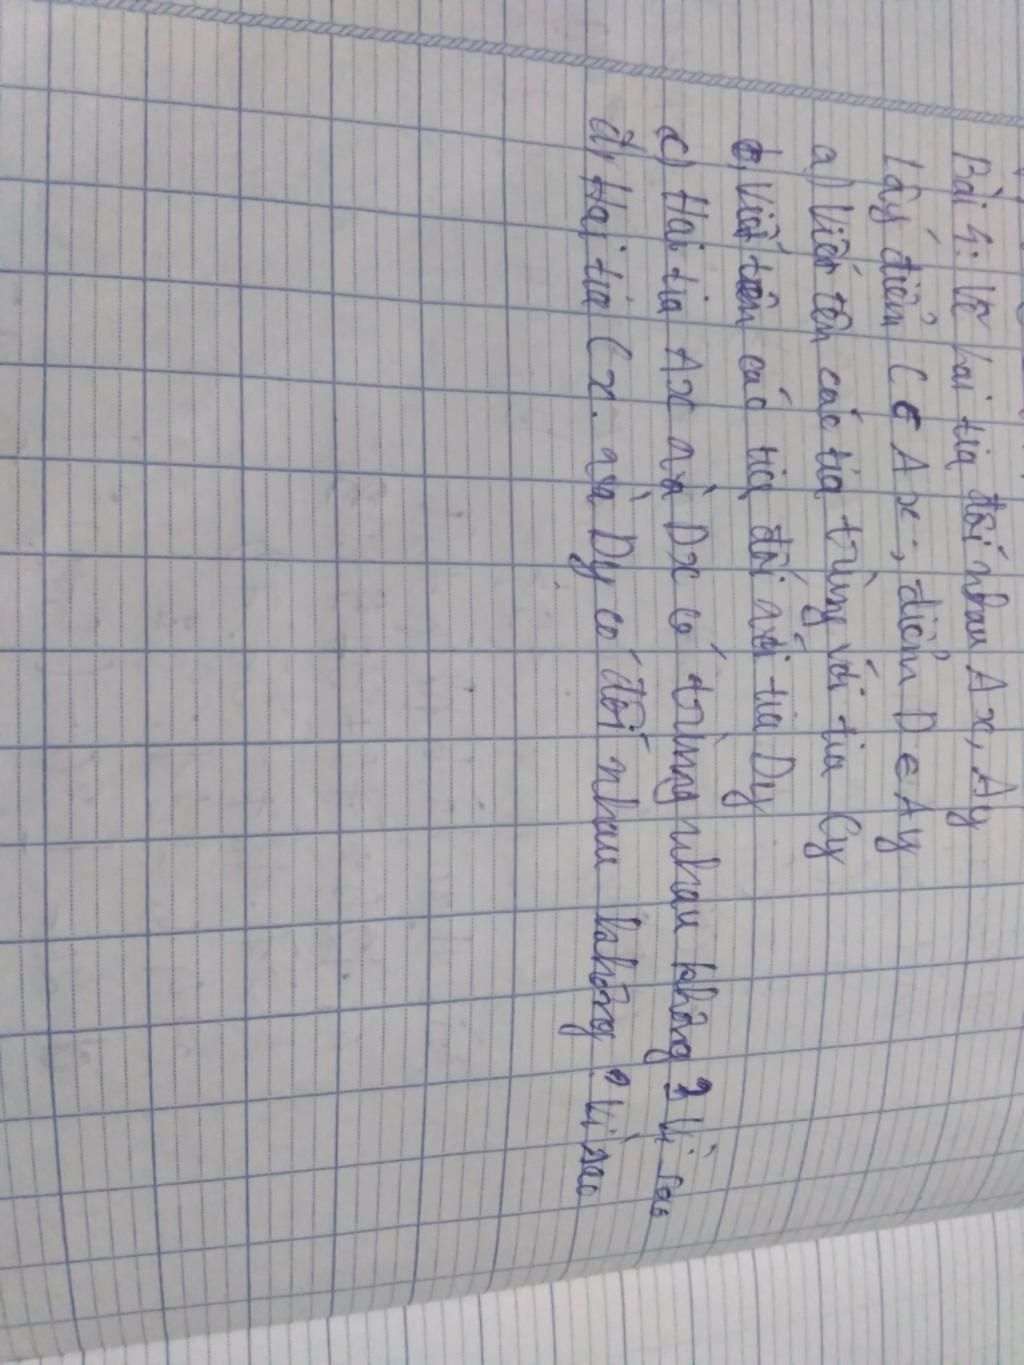 Bài 4: Vẽ hai tia đối nhau Ax, Ay
Lấy điểm C ∈ Ax, điểm D ∈ Ay
a) Viết tên các tia trùng với tia Cy
b) Viết tên các tia đối với tia Dy
c) Hai tia Ax và Dx có trùng nhau không? Vì sao
d) Hai tia Cx và Dy có đối nhau không? Vì sao